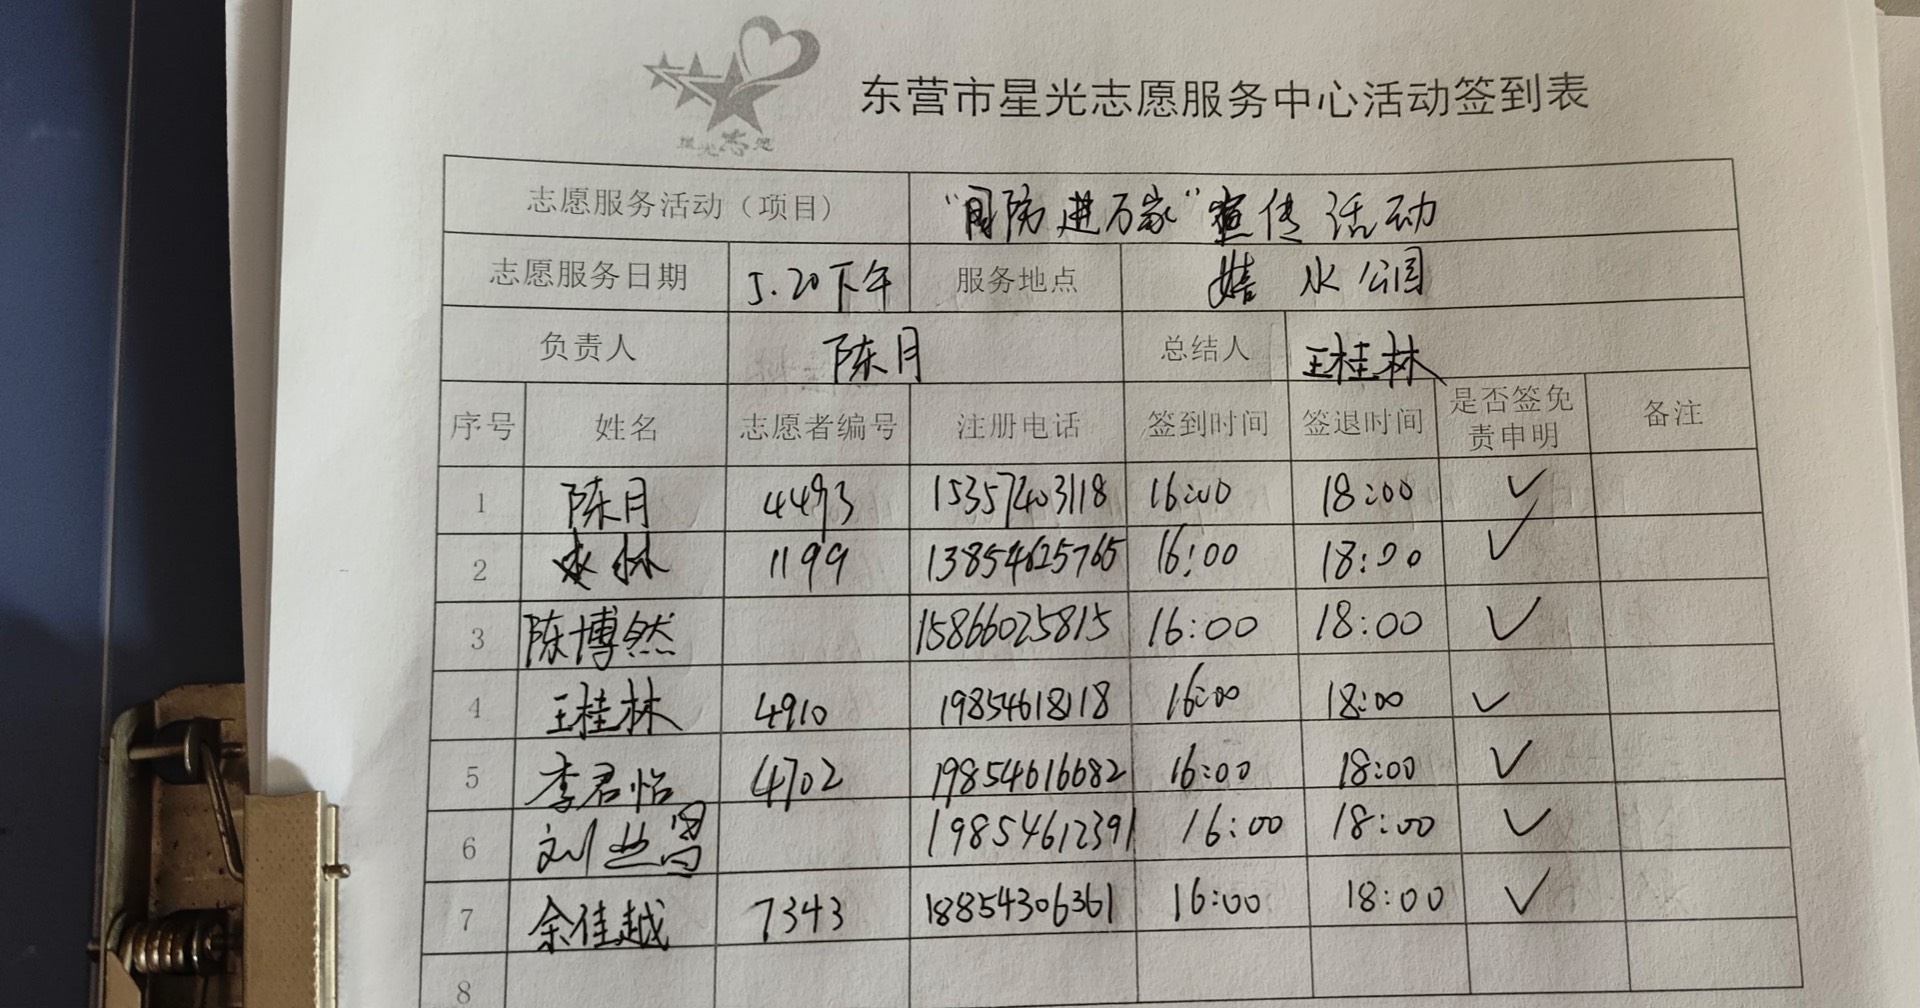 星光志愿
东营市星光志愿服务中心活动签到表
志愿服务活动（项目） “国防进万家”宣传活动
志愿服务日期 5.20下午 服务地点 嬉水公园
负责人 陈月 总结人 王桂林
序号 姓名 志愿者编号 注册电话 签到时间 签退时间 是否签免责申明 备注
1 陈月 4493 15357403118 16:00 18:00 ✓
2 林 1199 13854625765 16:00 18:00 ✓
3 陈博然 15866025815 16:00 18:00 ✓
4 王桂林 4910 19854618118 16:00 18:00 ✓
5 李君怡 4702 19854616682 16:00 18:00 ✓
6 刘 19854612391 16:00 18:00 ✓
7 余佳越 7343 18854306361 16:00 18:00 ✓
8